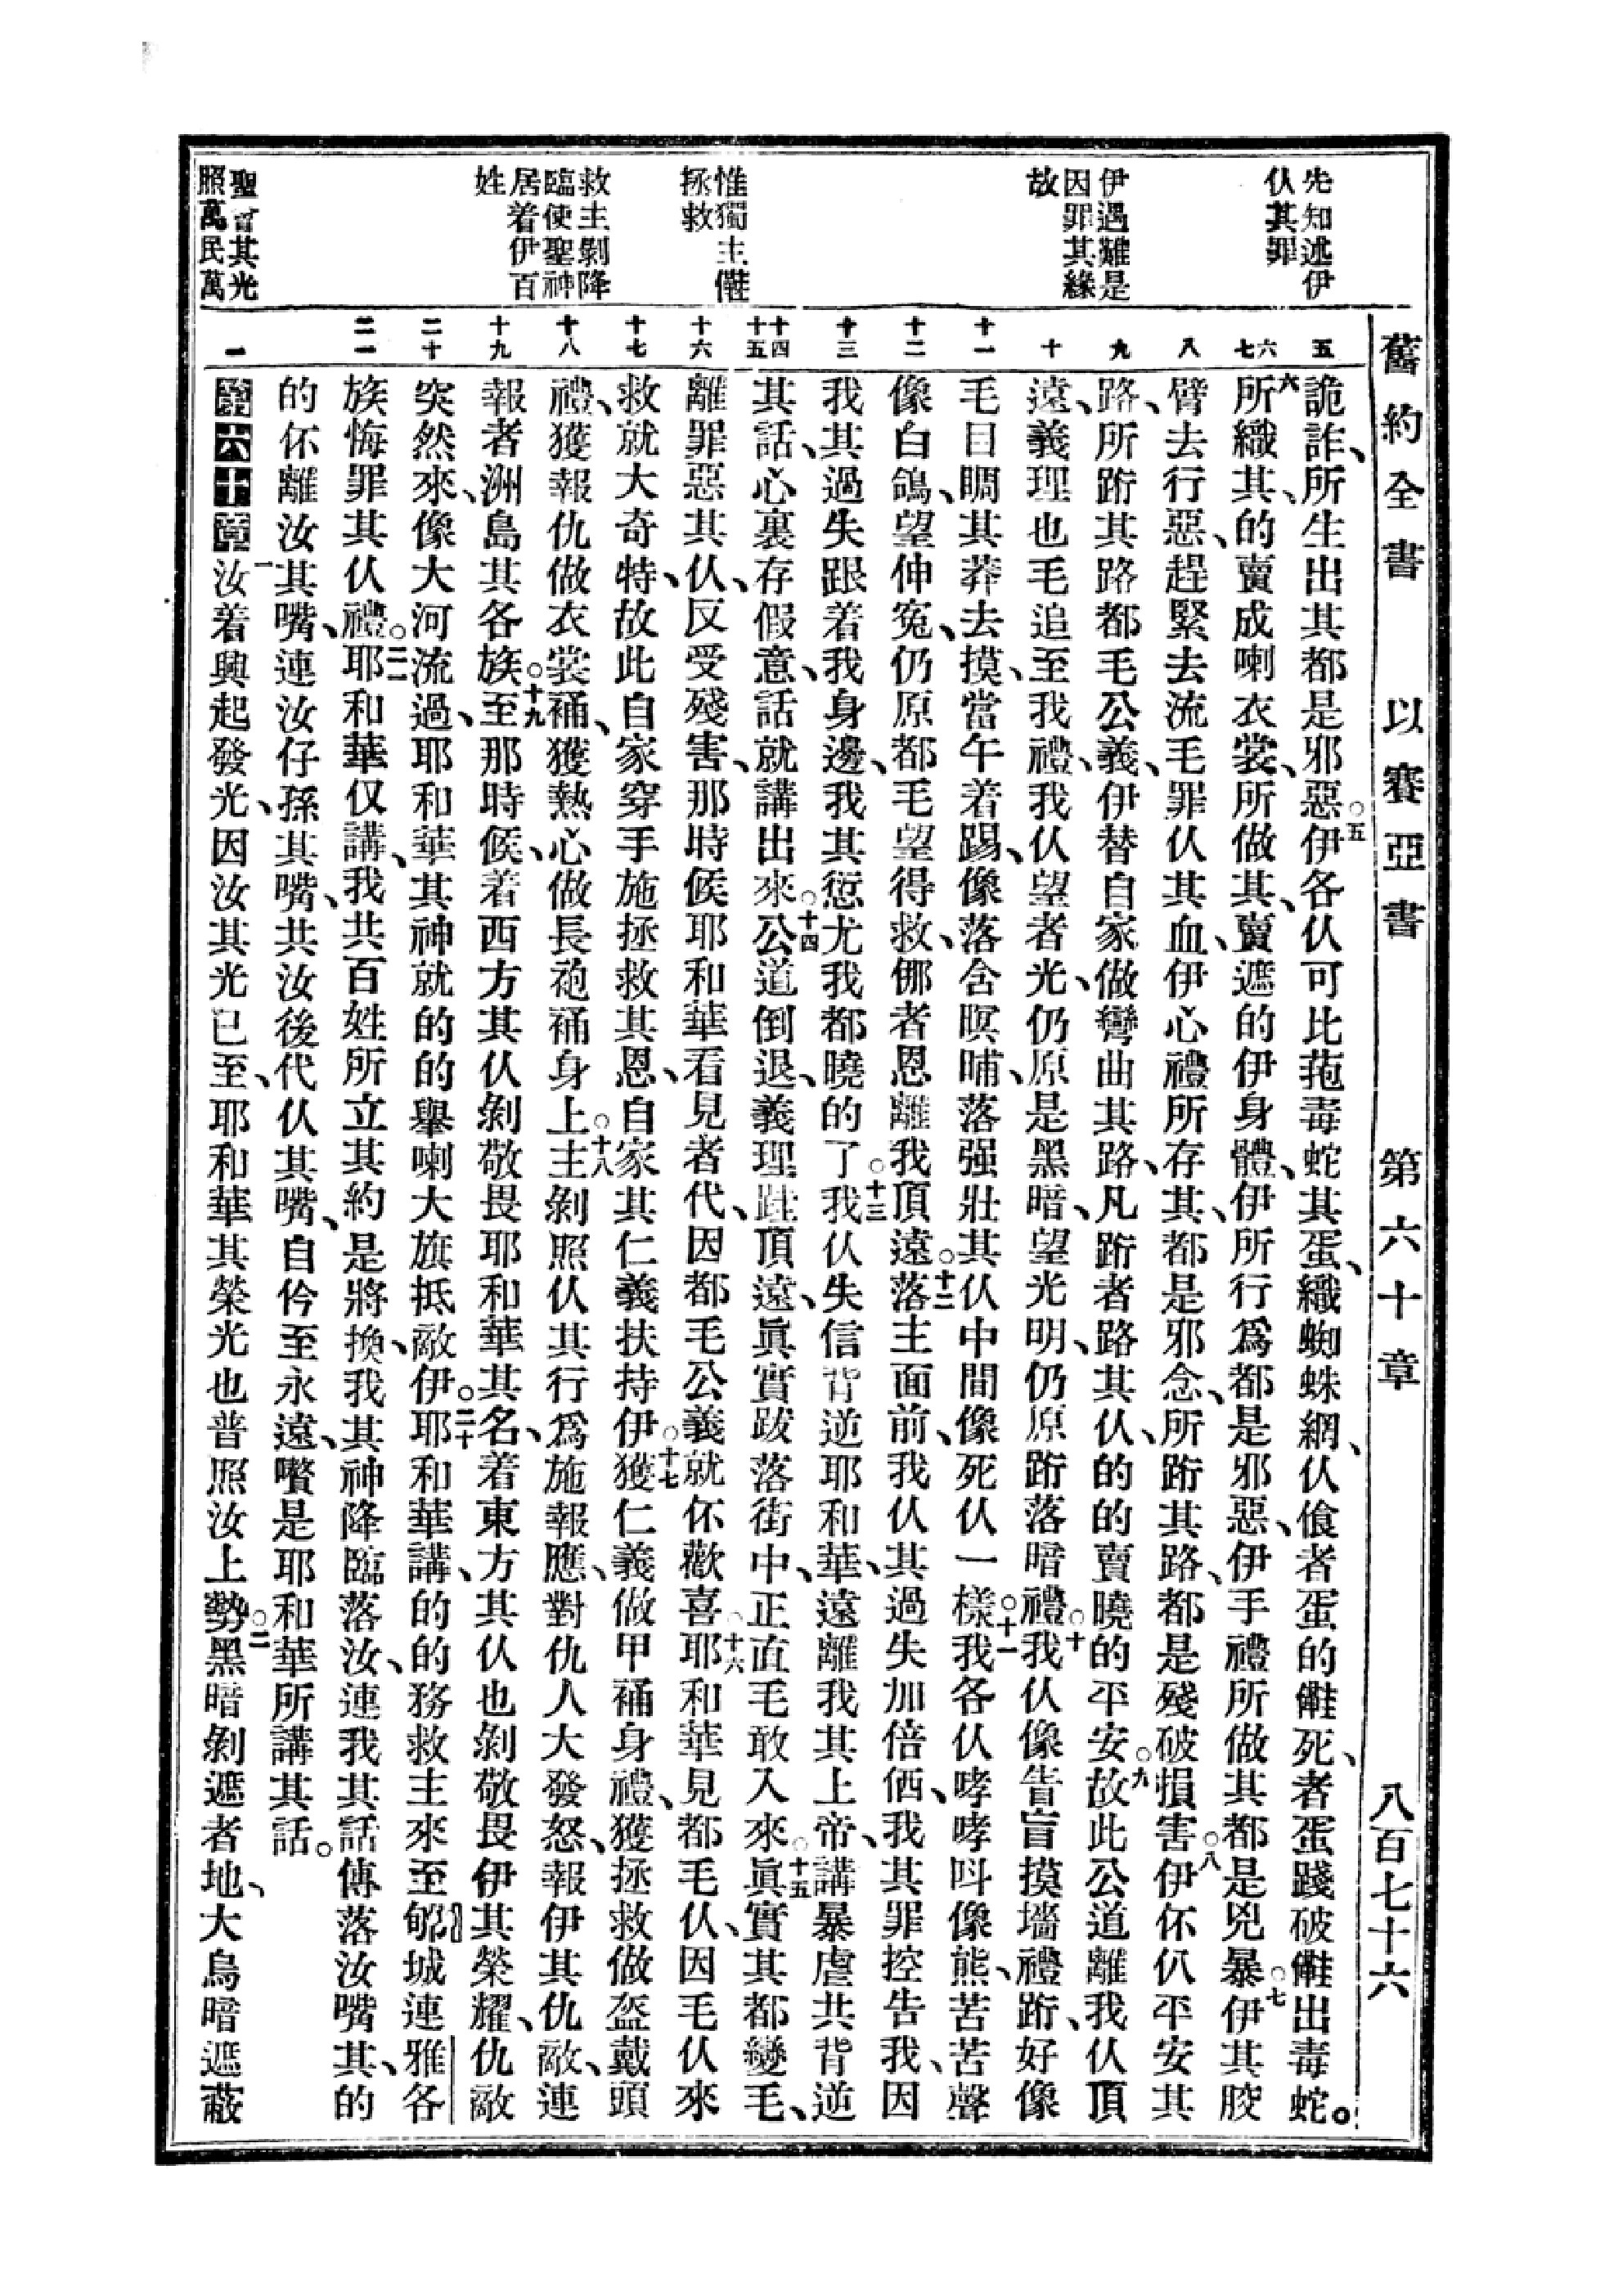 舊約全書 以賽亞書 第六十章 八百七十六
先知述伊
仈其罪
伊遇難是
因罪其緣
故
惟獨主㒕
拯救
救主剝降
臨使聖神
居着伊百
姓
聖會其光
照萬民萬
五
六
七
八
九
十
十一
十二
十三
十四
十五
十六
十七
十八
十九
二十
二一
一
詭詐、所生出其都是邪惡○五伊各仈可比苞毒蛇其蛋、織蜘蛛網、仈飡者蛋的㒕死、者蛋踐破㒕出毒蛇。
六所織其、的賣成喇衣裳、所做其、賣遮的伊身體、伊所行爲都是邪惡、伊手禮所做其都是兇暴○七伊其骹
臂去行惡、趕緊去流毛罪仈其血、伊心禮所存其、都是邪念、所跡其路、都是殘破損害○八伊伓仈平安其
路、所跡其路都毛公義、伊替自家做彎曲其路、凡跡者路其仈、的的賣曉的平安○九故此公道離我仈頂
遠、義理也毛追至我禮、我仈望者光、仍原是黑暗、望光明、仍原跡落暗禮○十我仈像眚盲摸墻禮跡、好像
毛目睭其莽去摸、當午着踢、像落含暝晡、落强壯其仈中間像死仈一樣○十一我各仈哮哮叫像熊、苦苦聲
像白鴿、望伸寃、仍原都毛望得救、㑚者恩離我頂遠○十二落主面前、我仈其過失加倍価、我其罪控告我、因
我其過失跟着我身邊、我其愆尤我都曉的了○十三我仈失信背逆耶和華、遠離我其上帝、講暴虐共背逆
其話、心裏存假意、話就講出來○十四公道倒退、義理跬頂遠、眞實跋落街中、正直毛敢入來○十五眞實其都變毛、
離罪惡其仈、反受殘害、那時候耶和華看見者代、因都毛公義就伓歡喜○十六耶和華見都毛仈、因毛仈來
救就大奇特、故此自家穿手施拯救其恩、自家其仁義扶持伊○十七獲仁義做甲裲身禮、獲拯救做盔戴頭
禮、獲報仇做衣裳裲、獲熱心做長袍裲身上○十八主剝照仈其行爲施報應、對仇人大發怒、報伊其仇敵、連
報者洲島其各族○十九至那時候、着西方其仈剝敬畏耶和華其名、着東方其仈也剝敬畏伊其榮耀、仇敵
突然來、像大河流過、耶和華其神就的的擧喇大旗抵敵伊○二十耶和華講、的的務救主來至郇城連雅各
族悔罪其仈禮○二一耶和華仅講、我共百姓所立其約是將換、我其神降臨落汝、連我其話傳落汝嘴其、的
的伓離汝其嘴、連汝仔孫其嘴、共汝後代仈其嘴、自仱至永遠、嚽是耶和華所講其話。
第六十章一汝着興起發光、因汝其光已至、耶和華其榮光也普照汝上勢○二黑暗剝遮者地、大烏暗遮蔽